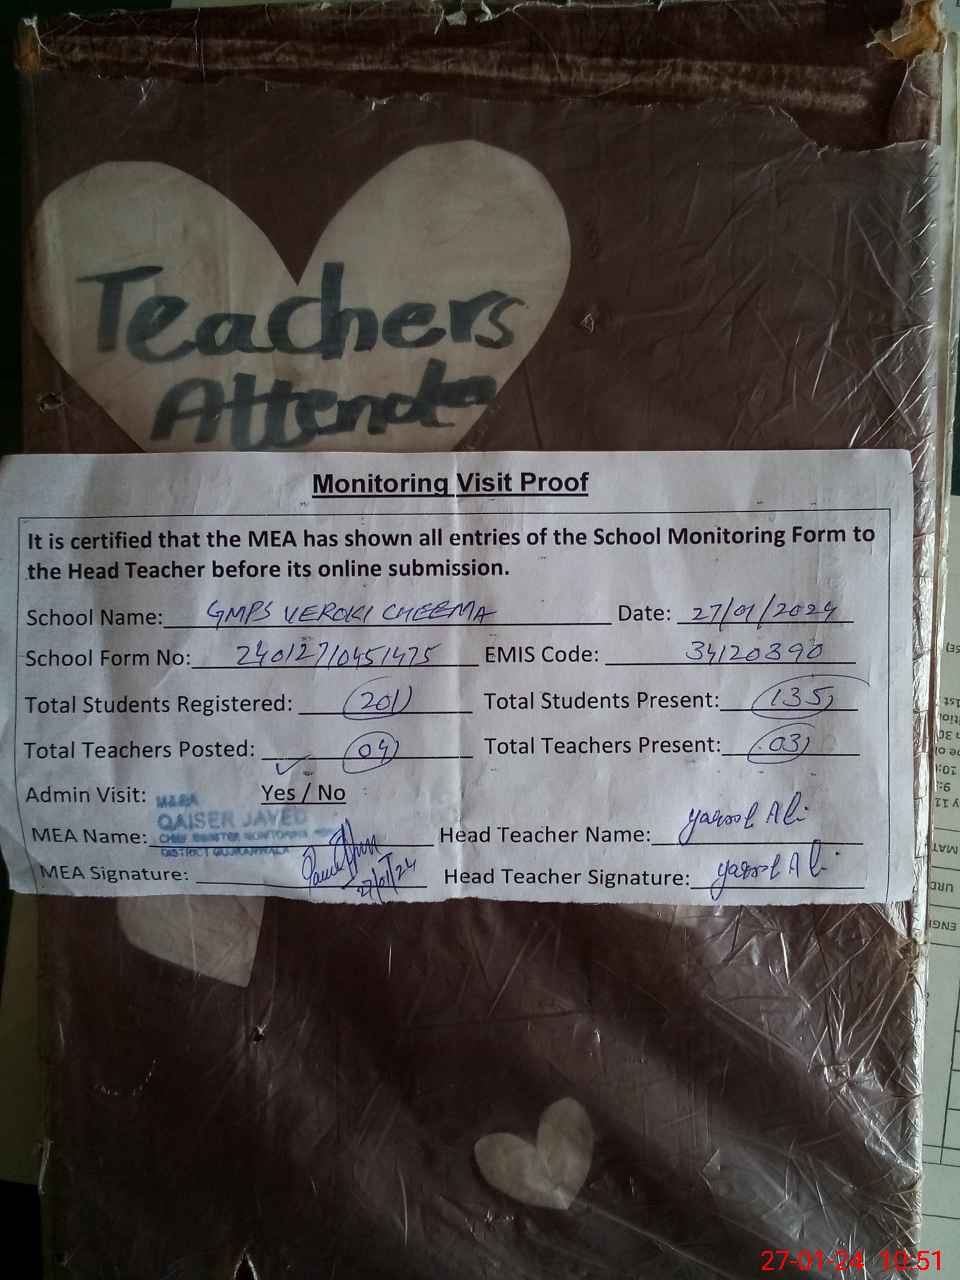 Teachers
Attenda
Monitoring Visit Proof
It is certified that the MEA has shown all entries of the School Monitoring Form to
the Head Teacher before its online submission.
School Name: GMPS VEROKI CHEEMA Date: 27/01/2024
School Form No: 240127/0451475 EMIS Code: 34120890
Total Students Registered: 201 Total Students Present: 135
Total Teachers Posted: 04 Total Teachers Present: 03
Admin Visit: Yes / No
M&EA
QAISER JAVED
MEA Name: Head Teacher Name: Ali
DISTRICT GUJRANWALA
MEA Signature: 27/01/24 Head Teacher Signature: Ali
MAT
URD
ENGI
27-01-24 10:51